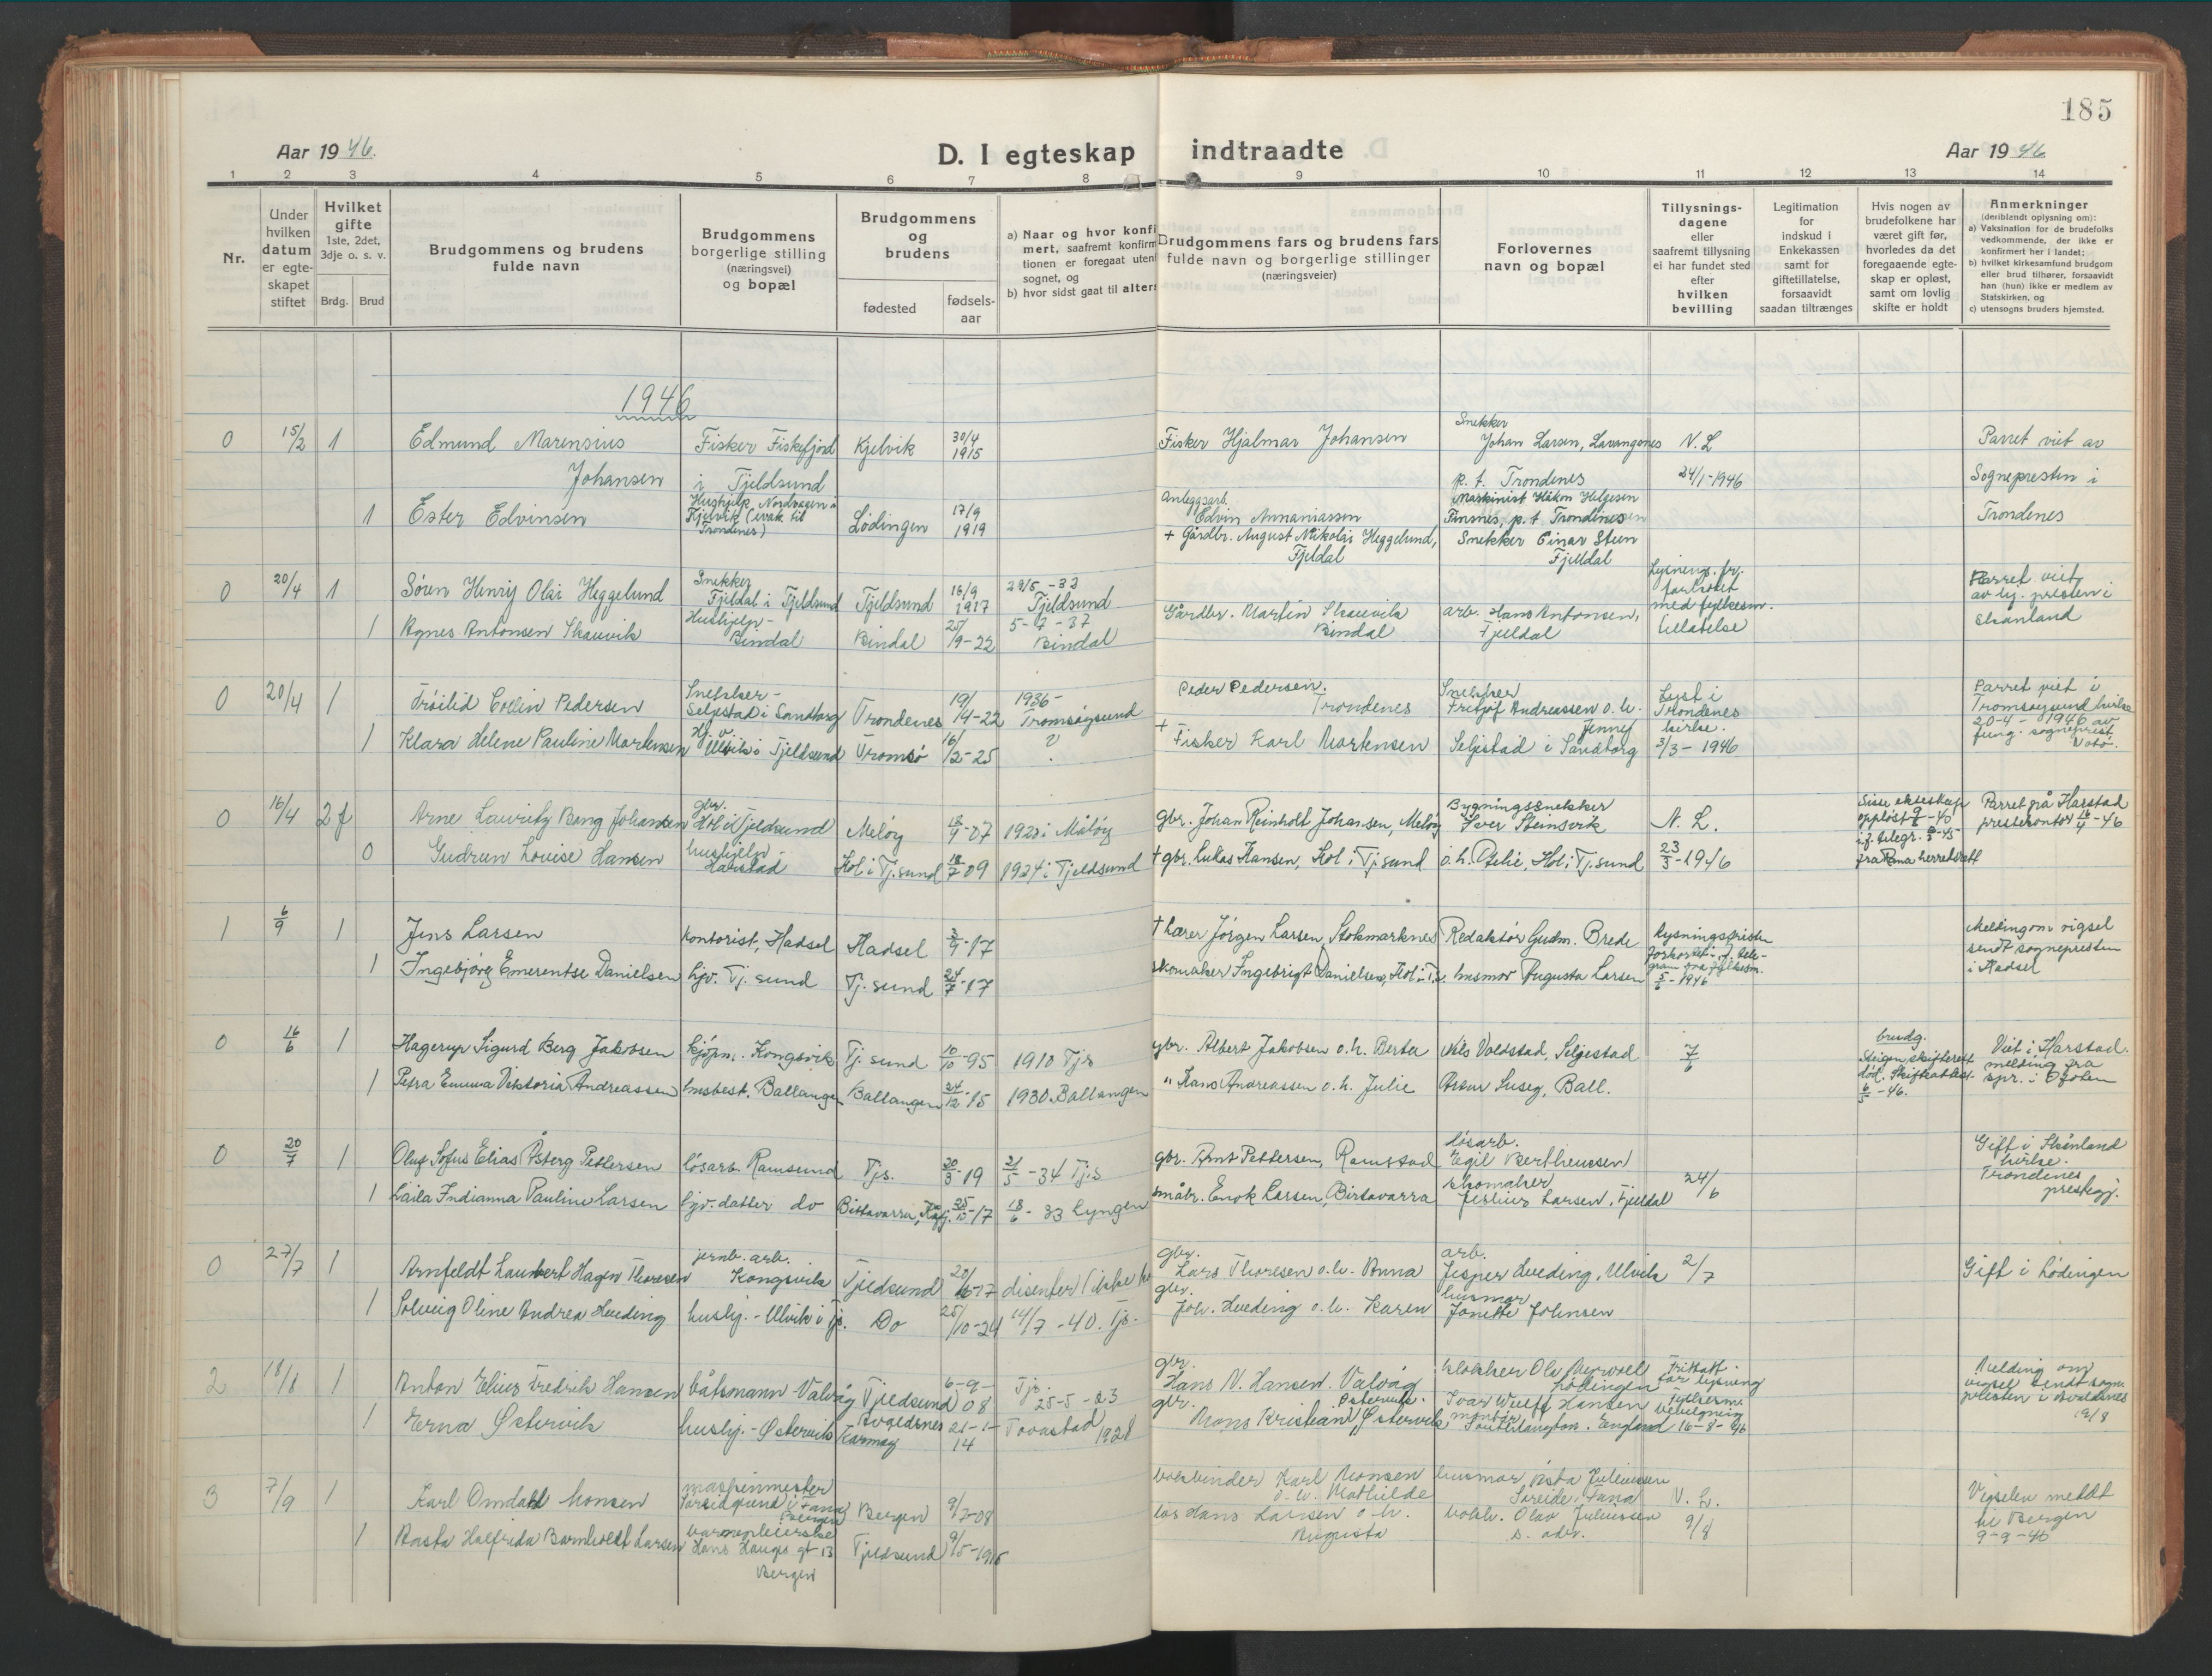 185
Aar 1946.
D. I egteskap indtraadte
Aar 1946
1 2 3 4 5 6 7 8 9 10 11 12 13 14
Nr.
Under hvilken datum er egteskapet stiftet
Hvilket gifte 1ste, 2det, 3dje o. s. v.
Brdg. Brud
Brudgommens og brudens fulde navn
Brudgommens borgerlige stilling (næringsvei) og bopæl
Brudgommens og brudens
fødested
fødsels-aar
a) Naar og hvor konfi
mert, saafremt konfirm
tionen er foregaat uten
sognet, og
b) hvor sidst gaat til alters
Brudgommens fars og brudens fars
fulde navn og borgerlige stillinger
(næringsveier)
Forlovernes
navn og bopæl
Tillysnings-
dagene
eller
saafremt tillysning
ei har fundet sted
efter
hvilken
bevilling
Legitimation
for
indskud i
Enkekassen
samt for
giftetillatelse,
forsaavidt
saadan tiltrænges
Hvis nogen av
brudefolkene har
været gift før,
hvorledes da det
foregaaende egte-
skap er opløst,
samt om lovlig
skifte er holdt
Anmerkninger
(deriblandt oplysning om):
a) Vaksination for de brudefolks
vedkommende, der ikke er
konfirmert her i landet;
b) hvilket kirkesamfund brudgom
eller brud tilhører, forsaavidt
han (hun) ikke er medlem av
Statskirken, og
c) utensogns bruders hjemsted.
1946
0 15/2 1 Edmund Marensius Johansen
Fisker Fiskefjord i Tjeldsund
Kjelvik 30/4 1915
Fisker Hjalmar Johansen
Snekker Johan Larsen, Lavangenes p. t. Trondenes
N. L 24/1-1946
Parret viet av Sognepresten i Trondenes
1 Ester Edvinsen
Hushjelp Nordvågen i Kjelvik (evak til Trondenes)
Lødingen 17/9 1919
Anleggsarb. Edvin Annaniassen
Maskinist Håkon Helgesen Finsnes, p. t. Trondenes
0 20/4 1 Søren Henrij Olai Heggelund
Snekker Fjeldal i Tjeldsund
Tjeldsund 16/9 1917
28/5-32 Tjeldsund
+ Gårdbr. August Nikolai Heggelund, Fjeldal
Snekker Einar Steen Fjeldal
Lysnings.fr. forkortet med fylkesm. tillatelse
Parret viet av sogn presten i Skånland
1 Agnes Antonsen Skauvik
Hushjelp - Bindal
Bindal 25/9-22
5-7-37 Bindal
Gårdbr. Martin Skauvik Bindal
arb. Hans Antonsen, Fjeldal
0 20/4 1 Trøilid Collin Pedersen
Snekker - Seljestad i Sandtorg
Trondenes 19/4-22
1936 - Tromsøysund
Peder Pedersen. Trondenes
Snekker Fritjof Andreassen o. h. Jenny Seljestad i Sandtorg
Lyst i Trondenes kirke. 3/3-1946
Parret viet i Tromsøysund kirke 20-4-1946 av fung. sogneprest
1 Klara Helene Pauline Martensen
Hj. v. Ulvik i Tjeldsund
Tromsø 16/2-25
?
+ Fisker Karl Martensen
0 16/4 2 f Arne Lauritz Bang Johansen
gbr. Hol i Tjeldsund
Meløy 18/9-07
1923 i Måløy
gbr. Johan Reinholt Johansen, Meløy
Bygningssnekker Iver Steinsvik
N. L. 23/3-1946
Siste ekteskap oppløst 9/8-40 i.f. telegr. 8/3-45 fra Rana herredsrett
Parret på Harstad prestekontor 16/4-46
0 Gudrun Lovise Hansen
hushjelp - Harstad
Hol i Tj.sund 18/7 09
1924 i Tjeldsund
+ gbr. Lukas Hansen, Hol i Tj.sund
o. h. Otelie, Hol i Tj.sund
1 6/9 1 Jens Larsen
kontorist, Hadsel
Hadsel 3/9-17
+ Lærer Jørgen Larsen, Stokmarknes
Redaktør Gudm. Brede
Lysningsfristen forkortet i.f. telegram fra fylkesm. 5/6-1946
Melding om vigsel sendt sognepresten i Hadsel
1 Ingebjørg Emerentse Danielsen
hjv. Tj. sund
Tj. sund 24/7-17
skomaker Ingebrigt Danielsen, Hol i Tj.s.
husmor Augusta Larsen
0 16/6 1 Hagerup Sigurd Berg Jakobsen
kjøpm. Kongsvik
Tj. sund 10/10-95
1910 Tjs
gbr. Albert Jakobsen o.h. Berta
Nils Voldstad, Seljestad
7/6
brudg. Steigen skifterett død. Skifteattest. 6/5-46.
Viet i Harstad. melding fra spr. i Ofoten
1 Petra Emma Viktoria Andreassen
husbest. Ballangen
Ballangen 24/12-15
1930. Ballangen
" Hans Andreassen o. h. Julie
Oskar Suseg, Ball.
0 20/7 1 Oluf Sofus Elias Åsberg Pettersen
løsarb. Ramsund
Tjs. 20/3-19
21/5-34 Tjs
gbr. Arnt Pettersen, Ramstad
løsarb. Egil Bertheussen
24/6
Gift i Skånland kirke. Trondenes prestegj.
1 Laila Indianna Pauline Larsen
hjv. datter do
Birtavarra, Kåfj. 25/10-17
18/6-33 Lyngen
småbr. Enok Larsen, Birtavarra
skomaker Larsen, Fjeldal
0 27/7 1 Arnfeldt Laubert Hagen Thoresen
jernb. arb. Kongsvik
Tjeldsund 20/6-17
disenter (ikke k
gbr. Lars Thoresen o.h. Anna
arb. Jesper Hveding, Ulvik
2/7
Gift i Lødingen
1 Solveig Oline Andrea Hveding
hushj. - Ulvik i Tjs.
Do 25/10-24
14/7-40. Tjs.
gbr. Joh. Hveding o. h. Karen
husmor Janette Johnsen
2 18/8 1 Anton Elius Fredrik Hansen
båtsmann - Valvåg
Tjeldsund 6-9-08
Tjs. 25-5-23
gbr. Hans N. Hansen. Valvåg
klokker Ole Lødingen
Fritatt for lysning Fylkesm. 16-8-46
Melding om vigsel sendt sogneprесten i Avaldsnes 19/8
1 Erna Østervik
hushj. - Østervik
Avaldsnes Karmøy 21-1-14
Torvastad 1928
gbr. Mons Kristian Østervik. Østervik
Ivar Wulff Hansen Southhampton. England
3 7/9 1 Karl Omdahl Monsen
maskinmester i Fana Bergen
Bergen 9/7-08
bokbinder Karl Monsen o. h. Mathilde
husmor Asta Juliussen Søreide, Fana
N. L. 9/8
Vigselen meldt til Bergen 9-9-46
1 Aasta Halfrida Barnholdt Larsen
barnepleierske Hans Hauges gt 13 Bergen
Tjeldsund 9/5-1915
los Hans Larsen o. h. Augusta
bokh. Olav Juliussen s. adr.